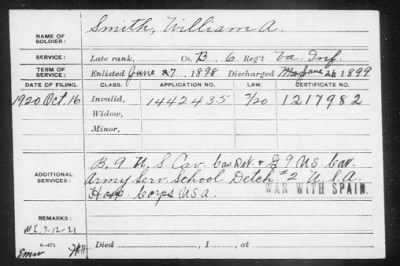 NAME OF SOLDIER: Smith, William A.
SERVICE: Late rank, Co. B. 6 Reg't Va. Inf.
TERM OF SERVICE: Enlisted June 27, 1898 Discharged 1899
DATE OF FILING. CLASS. APPLICATION NO. LAW. CERTIFICATE NO.
1920 Oct. 16 Invalid, 1442435 1217982
Widow,
Minor,
ADDITIONAL SERVICES: B, 9 U S Cav. & G 9 US Cav.
Army Serv. School Detch #2 U.S.A.
WAR WITH SPAIN.
Hosp. Corps U.S.A.
REMARKS:
6-471
Died , 1 , at